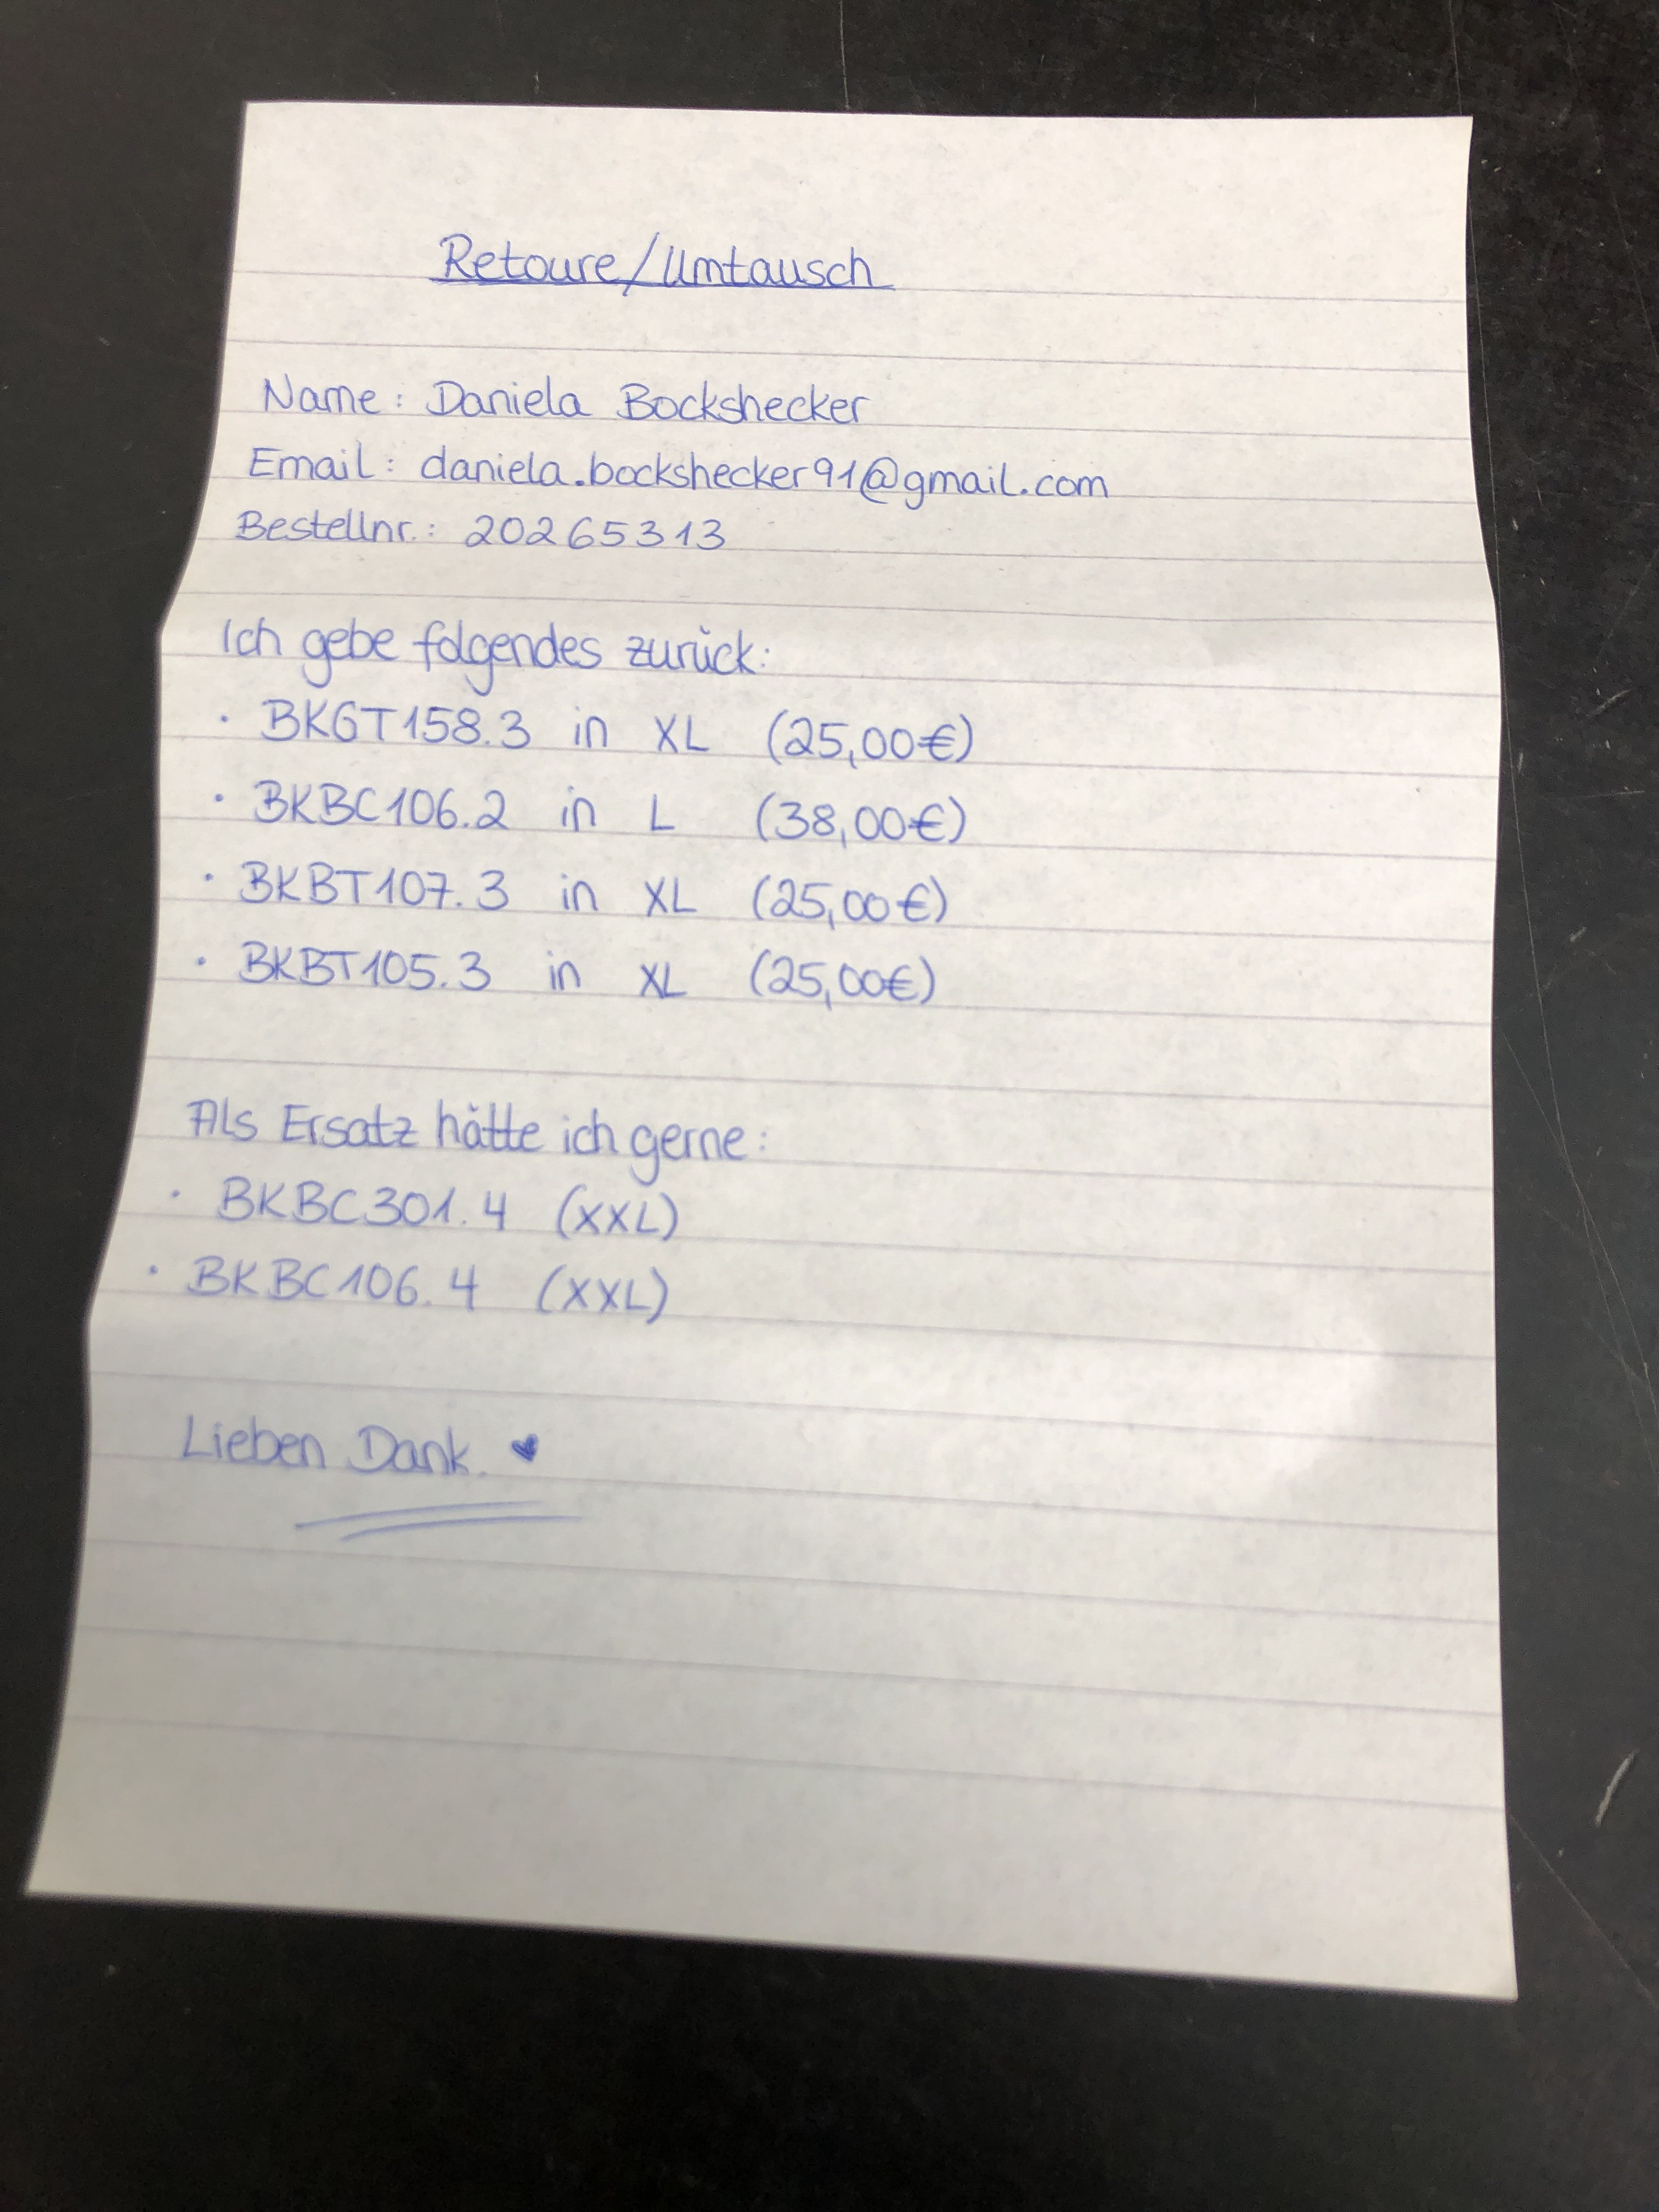 Retoure/Umtausch
Name: Daniela Bockshecker
Email: daniela.bockshecker91@gmail.com
Bestellnr.: 20265313
Ich gebe folgendes zurück:
· BKGT158.3 in XL (25,00€)
· BKBC106.2 in L (38,00€)
· BKBT107.3 in XL (25,00€)
· BKBT105.3 in XL (25,00€)
Als Ersatz hätte ich gerne:
· BKBC301.4 (XXL)
· BKBC106.4 (XXL)
Lieben Dank. ♥